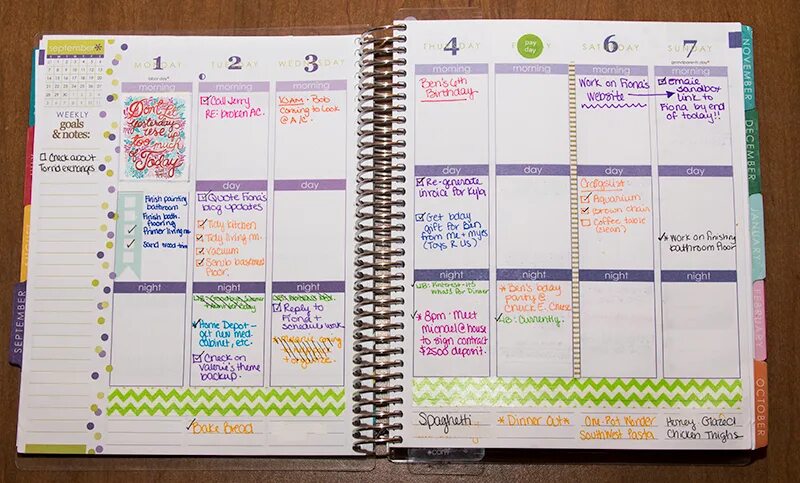 september
WEEKLY
goals
& notes:
Check about
1
MONDAY
labor day
morning
Don't
Let
Yesterday
use up
too
much
of
Today
day
Finish painting
bathroom
Finish bath.
flooring
Primer living rm.
Sand wood trim
night
2
TUESDAY
morning
Call Jerry
RE: broken AC.
day
Quote Fiona's
blog updates
Tidy kitchen
Tidy living rm.
Vacuum
floor.
night
Home Depot -
get new med.
cabinet, etc.
Check on
Valerie's theme
backup.
Bake Bread
3
WEDNESDAY
morning
10AM - Bob
Coming to Look
@ A/C
day
night
Reply to
Fiona +
schedule work
4
THURSDAY
morning
Ben's 6th
Birthday
day
Re-generate
invoice for Kyla
Get bday
gift for Ben
from me + myles
(Toys R Us)
night
What's for Dinner
8pm - Meet
michael @ house
to sign contract
$2500 deposit.
Spaghetti
pay
day
morning
day
night
*Ben's bday
party @
Chuck E. Cheese
LB: Currently
*Dinner Out*
6
SATURDAY
morning
Work on Fiona's
Website
day
Craigslist:
Aquarium
Brown chair
Coffee table
(clean)
night
One-Pot Wonder
SouthWest Pasta
7
SUNDAY
grandparents day
morning
Email
sandbox
link to
Fiona by end
of today!!
day
* Work on finishing
bathroom floor
night
Honey Glazed
Chicken Thighs
SEPTEMBER
NOVEMBER
DECEMBER
JANUARY
FEBRUARY
OCTOBER